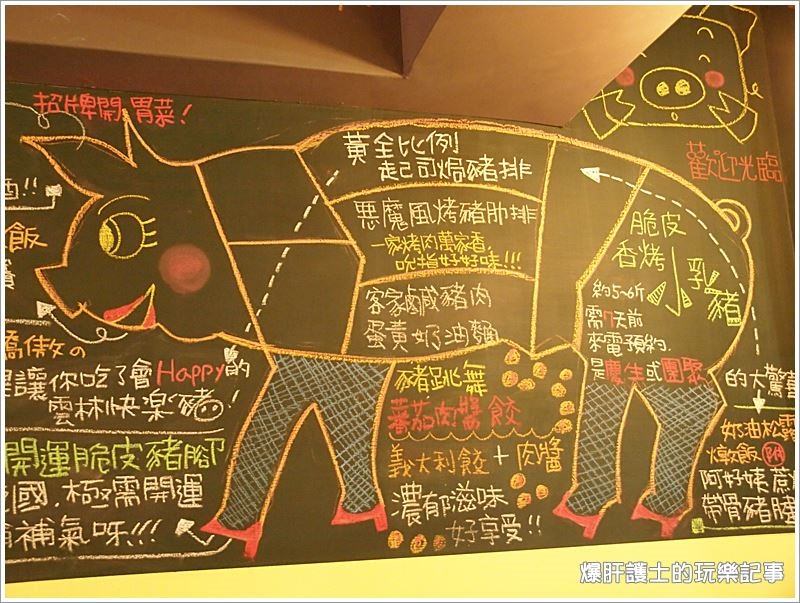 招牌開胃菜!
歡迎光臨
黃全比例
起司焗豬排
惡魔風烤豬肋排
一家烤肉萬家香,
吮指好好味!!!
客家鹹豬肉
蛋黃奶油麵
脆皮
香烤
小乳豬
約5~6斤
需7天前
來電預約.
是慶生或團聚
的大驚喜
酒!!
飯
傲の
讓你吃了會Happy的
雲林快樂豬!
開運脆皮豬腳
國.極需開運
補氣呀!!!
豬跳舞
蕃茄肉醬餃
義大利餃+肉醬
濃郁滋味
好享受!!
奶油松露
燉飯 附
阿好姨蔗
帶骨豬腱
爆肝護士的玩樂記事